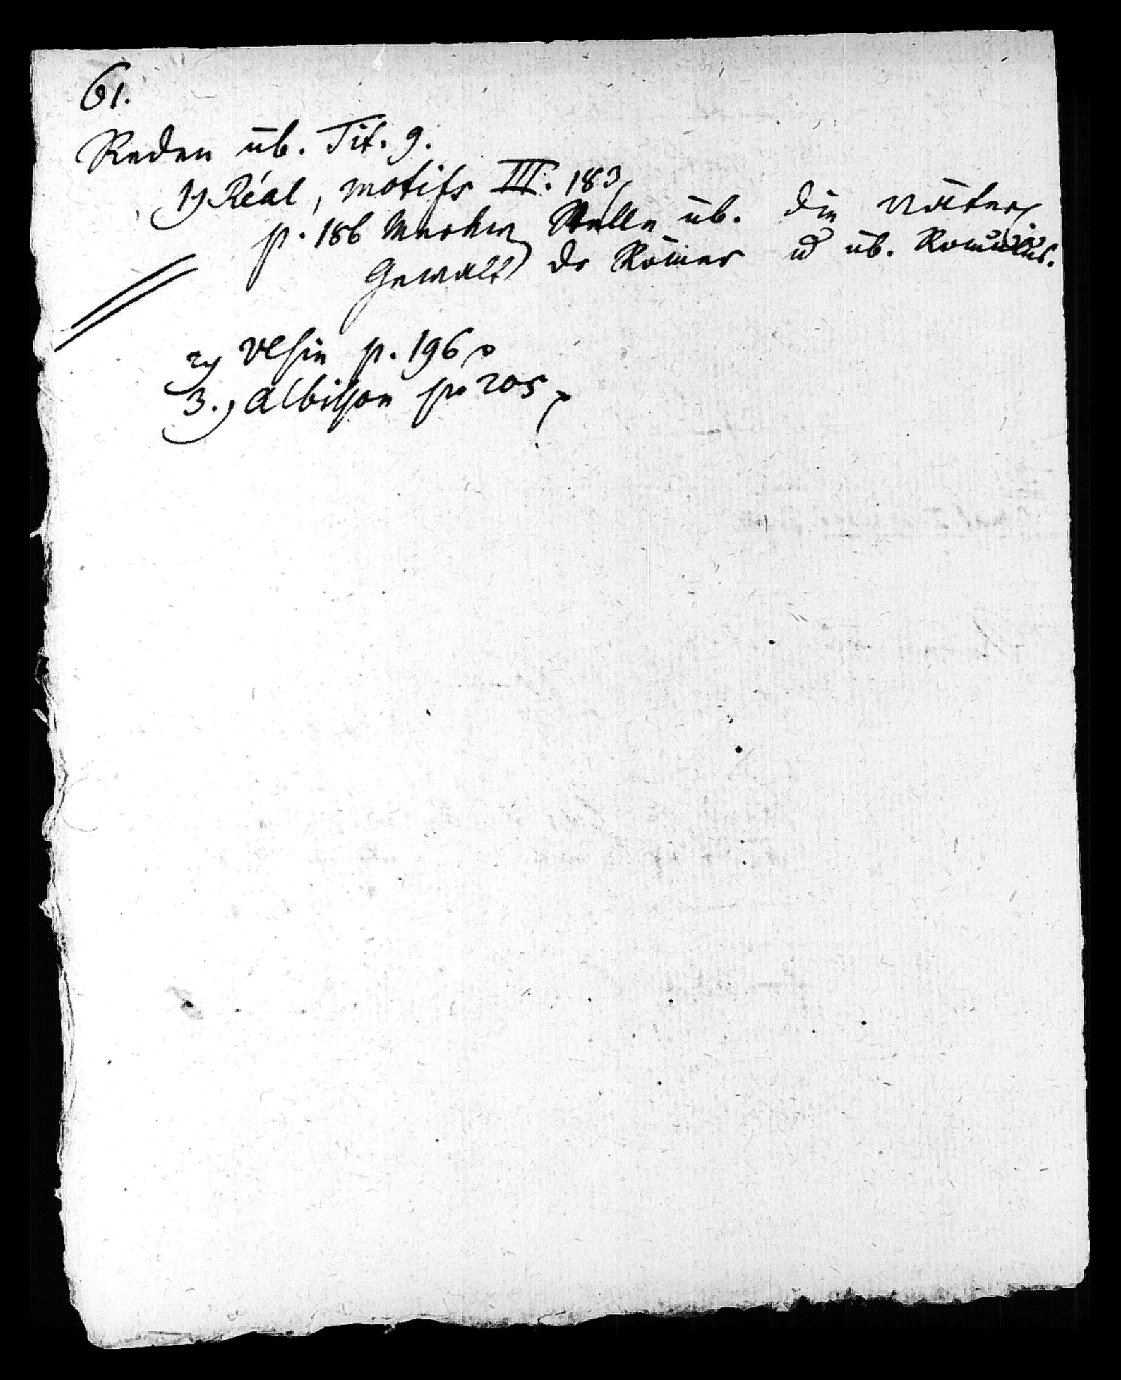 61.
Reden üb. Tit. 9.
1) Réal, motifs III. 183
p. 186 merkw Stelle üb. die Väter
Gewalt der Römer u üb. Romulus.
2) Vesin p. 196
3.) Albisson p. 205